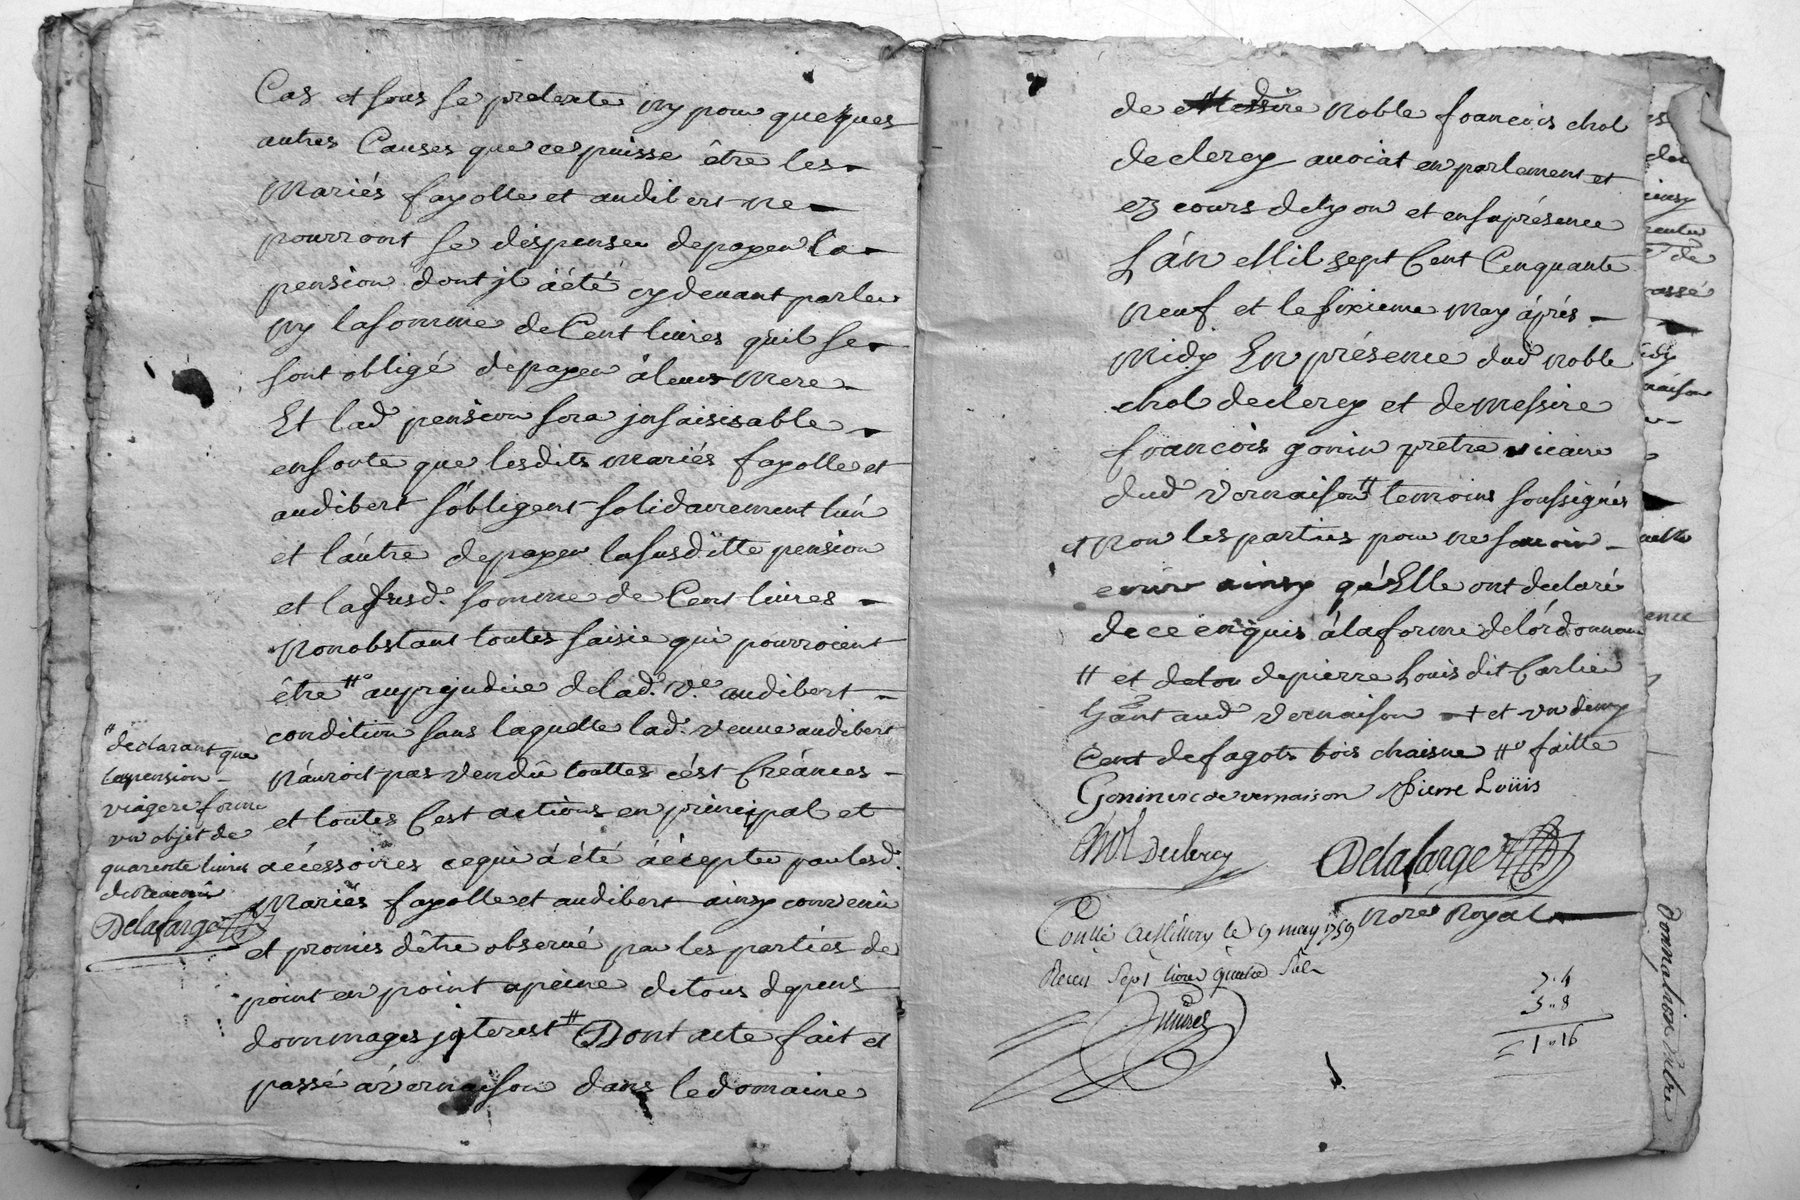 Cas et sous se pretexte ny pour queques
autres Causes que ce puisse être les
Mariés fayolle et audibert ne
pourront se dispenser de payer la
pension dont jl áété cy devant parler
ny la somme de Cent livres quil se
sont obligé de payer à leur mere
Et lad pension sera jnsaisisable
ensorte que lesdits mariés fayolle et
audibert s'obligent solidairement l'un
et l'autre de payer la susditte pension
et la susd. somme de Cent livres
Nonobstant toutes saisie qui pourroient
être # au prejudice de lad. ve. audibert
condition sans laquelle lad. veuve audibert
n'auroit pas vendû touttes cést Créances
et toutes Cest actions en principal et
accéssoires ce qui á été áccepter par lesd.
Mariés fayolle et audibert ainsy convenu
et promis d'être observé par les parties de
point en point a peine de tous depens
dommages jnterest # Dont acte fait et
passé à vernaison dans le domaine
# declarant que
la pension
viagere forme
un objet de
quarente livres
de revenu
Delafarge
de Messire Noble francois chol
declerey avocat en parlement et
ez cours de Lyon et en sa présence
L'án Mil sept Cent Cenquante
Neuf et le sixieme May áprés
Midy En présence dud noble
chol declerey et de Messire
francois gonin prêtre vicaire
dud vernaison # temoins soussignés
et Non les parties pour ne savoir
ecrire ainsy qu'Elle ont declaré
de ce enquis á la forme de l'órdonnance
# et de pierre Louis dit Carlier
aud vernaison + et un demy
Cent de fagots bois chaisne # faitte
Gonin vic de vernaison Pierre Loüis
Chol Declerey Delafarge
Nore Royal
le 9 may 1759
Recu sept livres quatre sols
7.4
5.8
1.16
Donnation